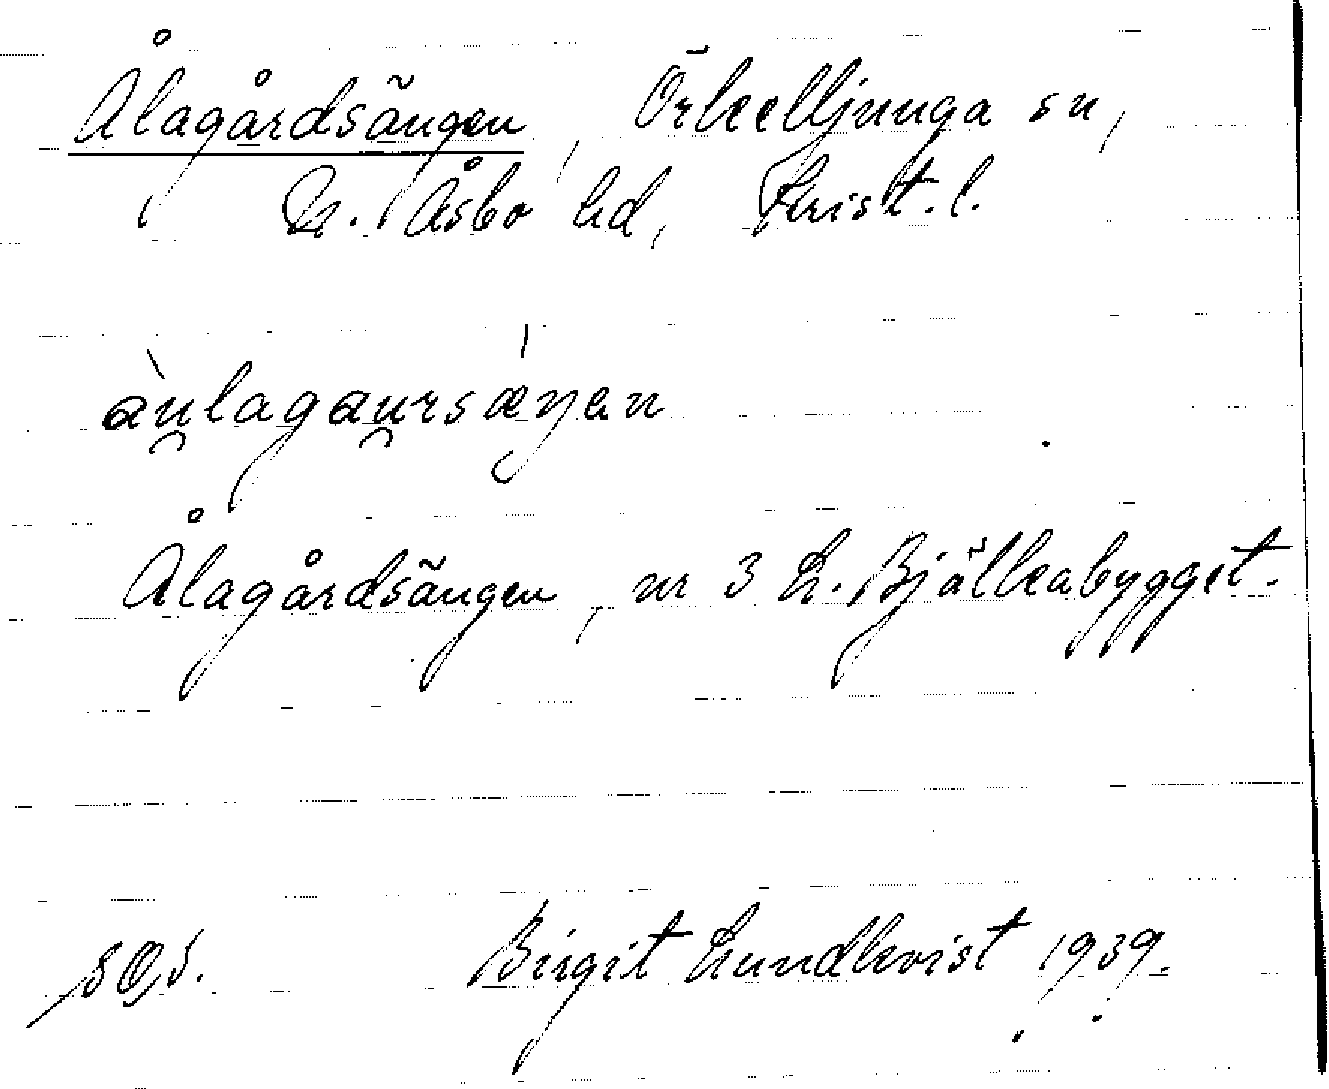 Ålagårdsängen, Örkelljunga sn,
N. Åsbo hd, Krist. l.
àu̯lagau̯rsǽŋen
Ålagårdsängen, nr 3 L. Bjälkabygget.
Birgit Lundkvist 1939.